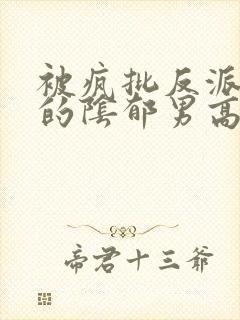 被疯批反派
的陰郁男高
帝君十三爷